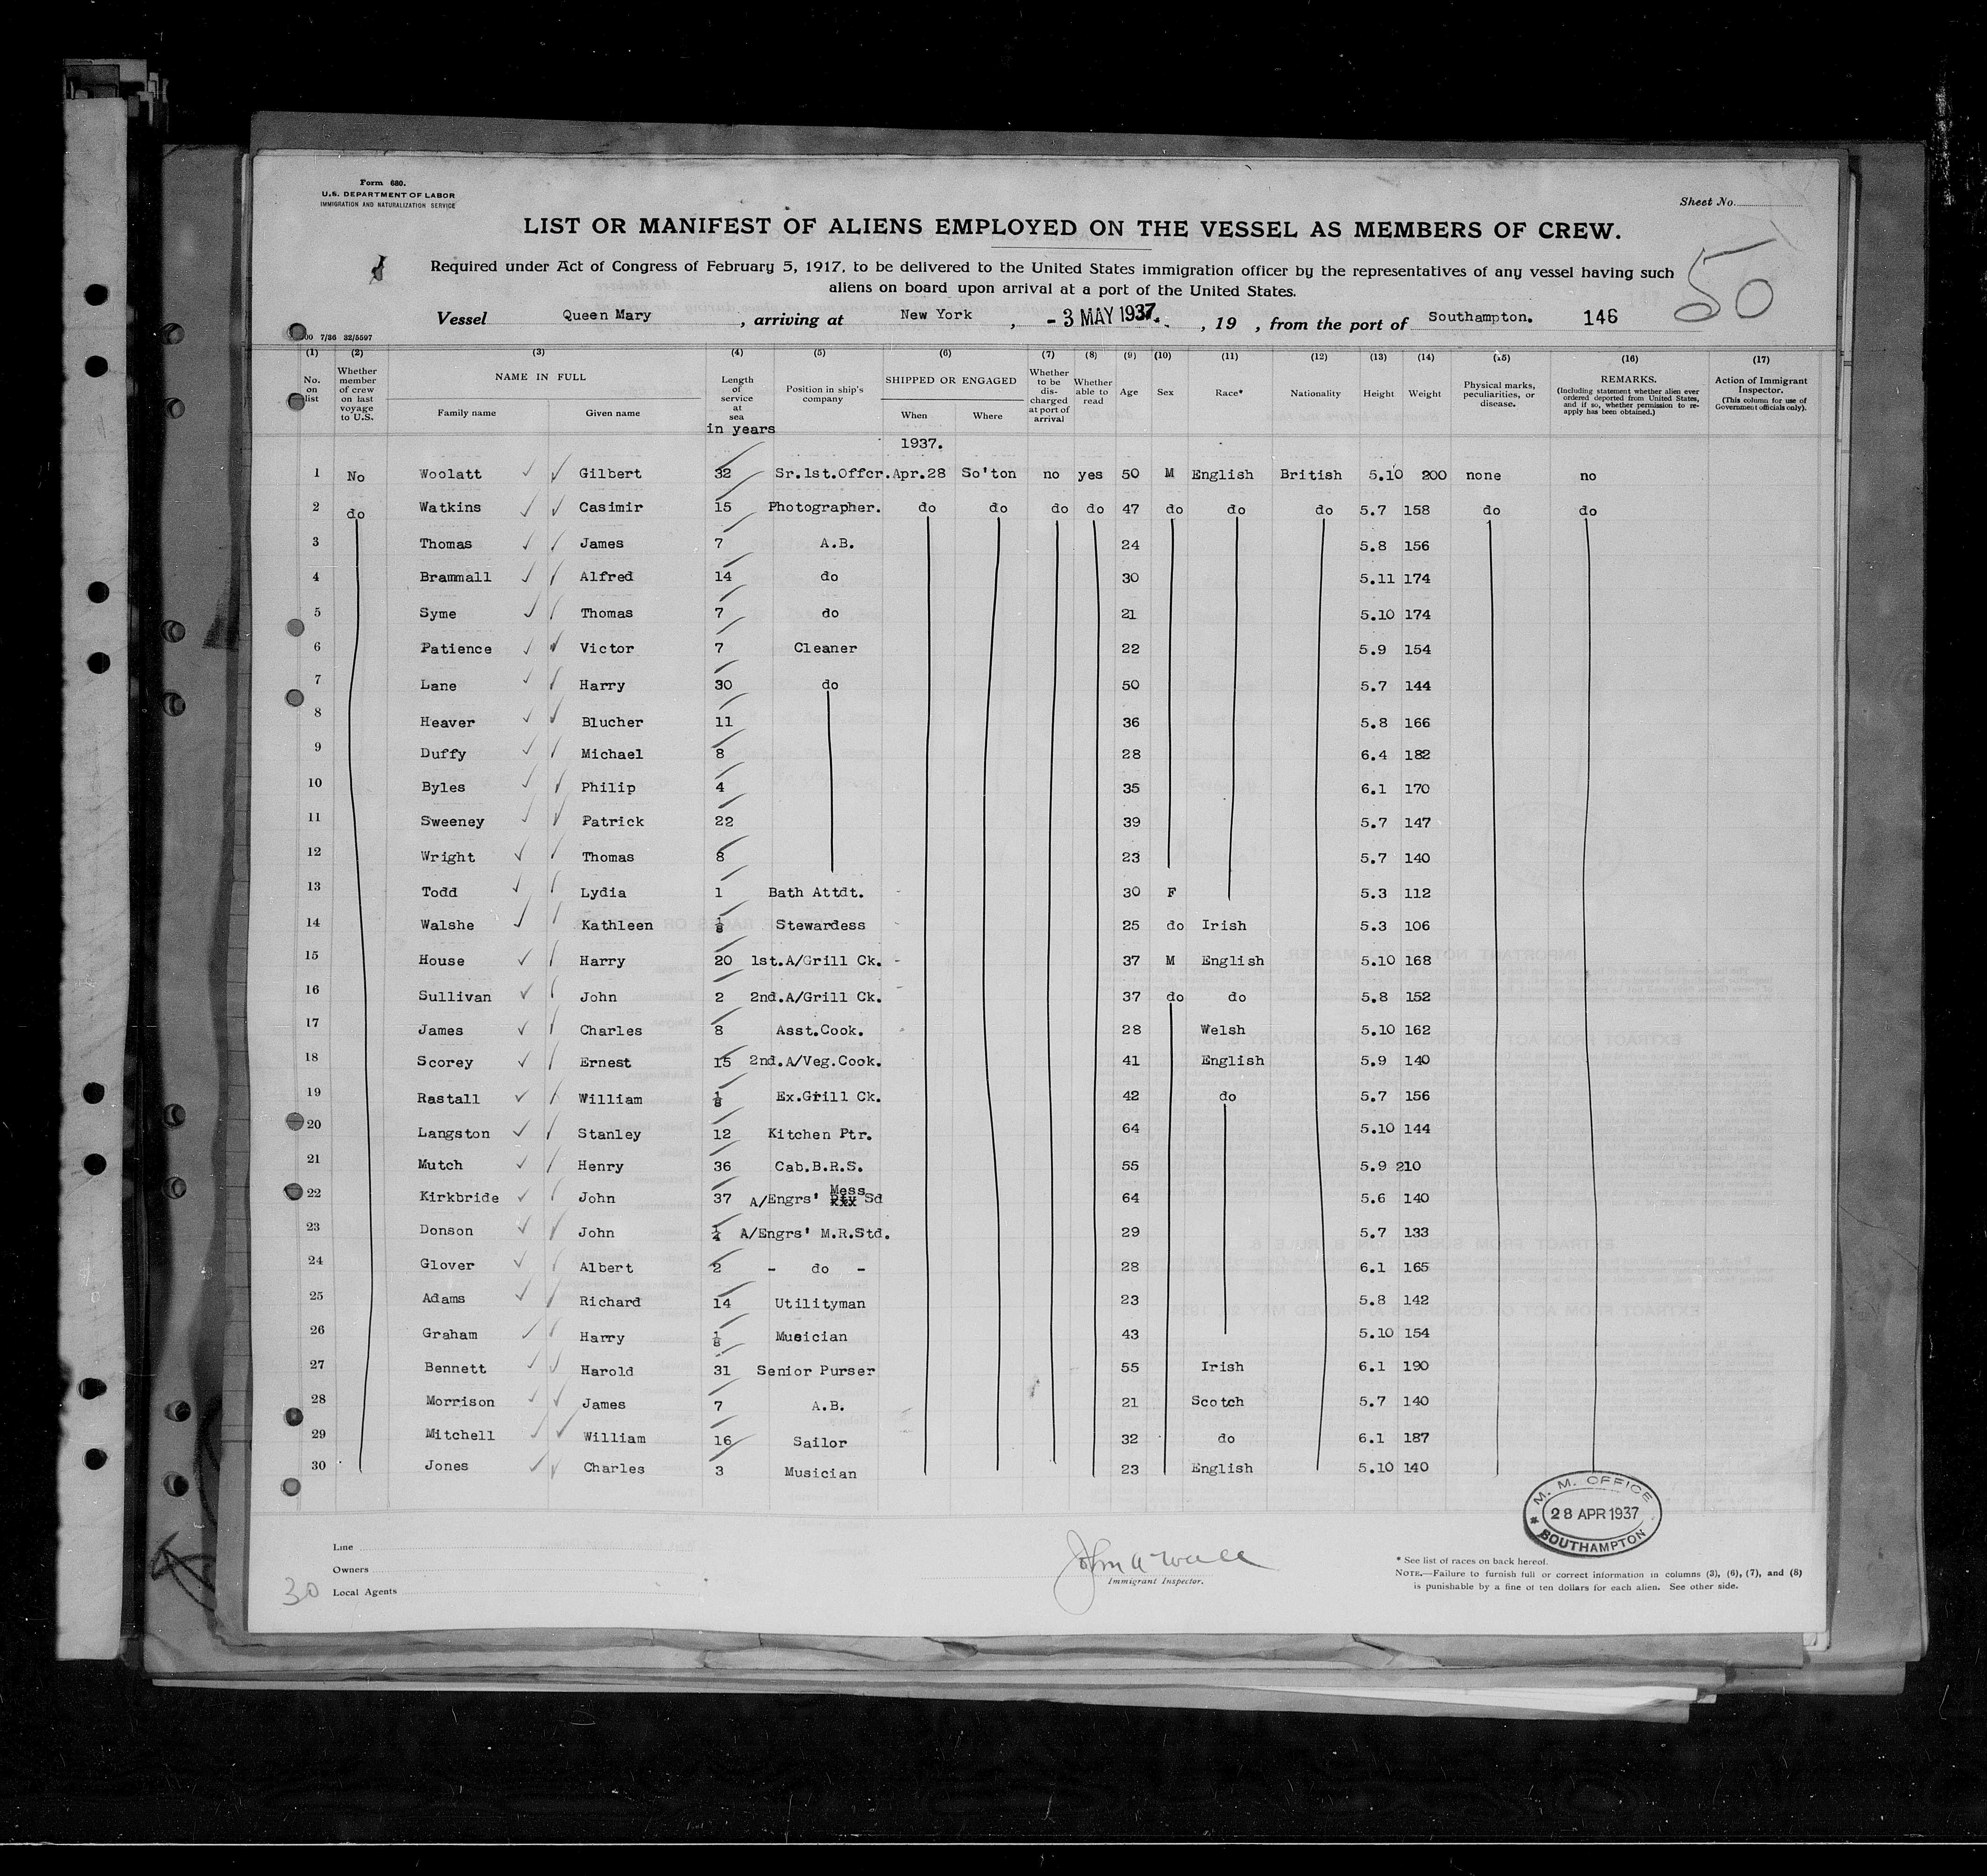 Form 680.
U.S. DEPARTMENT OF LABOR
IMMIGRATION AND NATURALIZATION SERVICE
Sheet No.
LIST OR MANIFEST OF ALIENS EMPLOYED ON THE VESSEL AS MEMBERS OF CREW.
50
Required under Act of Congress of February 5, 1917, to be delivered to the United States immigration officer by the representatives of any vessel having such
aliens on board upon arrival at a port of the United States.
Vessel Queen Mary , arriving at New York , - 3 MAY 1937. , 19 , from the port of Southampton. 146
00 7/36 32/5597
(1) (2) (3) (4) (5) (6) (7) (8) (9) (10) (11) (12) (13) (14) (15) (16) (17)
No. on list
Whether member of crew on last voyage to U.S.
NAME IN FULL
Family name Given name
Length of service at sea
in years
Position in ship's company
SHIPPED OR ENGAGED
When Where
Whether to be discharged at port of arrival
Whether able to read
Age
Sex
Race*
Nationality
Height
Weight
Physical marks, peculiarities, or disease.
REMARKS.
(Including statement whether alien ever ordered deported from United States, and if so, whether permission to reapply has been obtained.)
Action of Immigrant Inspector.
(This column for use of Government officials only).
1937.
1 No Woolatt Gilbert 32 Sr.1st.Offcr. Apr.28 So'ton no yes 50 M English British 5.10 200 none no
2 do Watkins Casimir 15 Photographer. do do do do 47 do do do 5.7 158 do do
3 Thomas James 7 A.B. 24 5.8 156
4 Brammall Alfred 14 do 30 5.11 174
5 Syme Thomas 7 do 21 5.10 174
6 Patience Victor 7 Cleaner 22 5.9 154
7 Lane Harry 30 do 50 5.7 144
8 Heaver Blucher 11 36 5.8 166
9 Duffy Michael 8 28 6.4 182
10 Byles Philip 4 35 6.1 170
11 Sweeney Patrick 22 39 5.7 147
12 Wright Thomas 8 23 5.7 140
13 Todd Lydia 1 Bath Attdt. 30 F 5.3 112
14 Walshe Kathleen 1/8 Stewardess 25 do Irish 5.3 106
15 House Harry 20 1st.A/Grill Ck. 37 M English 5.10 168
16 Sullivan John 2 2nd.A/Grill Ck. 37 do do 5.8 152
17 James Charles 8 Asst.Cook. 28 Welsh 5.10 162
18 Scorey Ernest 15 2nd.A/Veg.Cook. 41 English 5.9 140
19 Rastall William 1/8 Ex.Grill Ck. 42 do 5.7 156
20 Langston Stanley 12 Kitchen Ptr. 64 5.10 144
21 Mutch Henry 36 Cab.B.R.S. 55 5.9 210
22 Kirkbride John 37 A/Engrs' Mess Sd 64 5.6 140
23 Donson John 1/4 A/Engrs' M.R.Std. 29 5.7 133
24 Glover Albert 2 - do - 28 6.1 165
25 Adams Richard 14 Utilityman 23 5.8 142
26 Graham Harry 1/8 Musician 43 5.10 154
27 Bennett Harold 31 Senior Purser 55 Irish 6.1 190
28 Morrison James 7 A.B. 21 Scotch 5.7 140
29 Mitchell William 16 Sailor 32 do 6.1 187
30 Jones Charles 3 Musician 23 English 5.10 140
M. M. OFFICE
28 APR 1937
* SOUTHAMPTON
Line
Owners
30 Local Agents
Immigrant Inspector.
* See list of races on back hereof.
NOTE.—Failure to furnish full or correct information in columns (3), (6), (7), and (8)
is punishable by a fine of ten dollars for each alien. See other side.